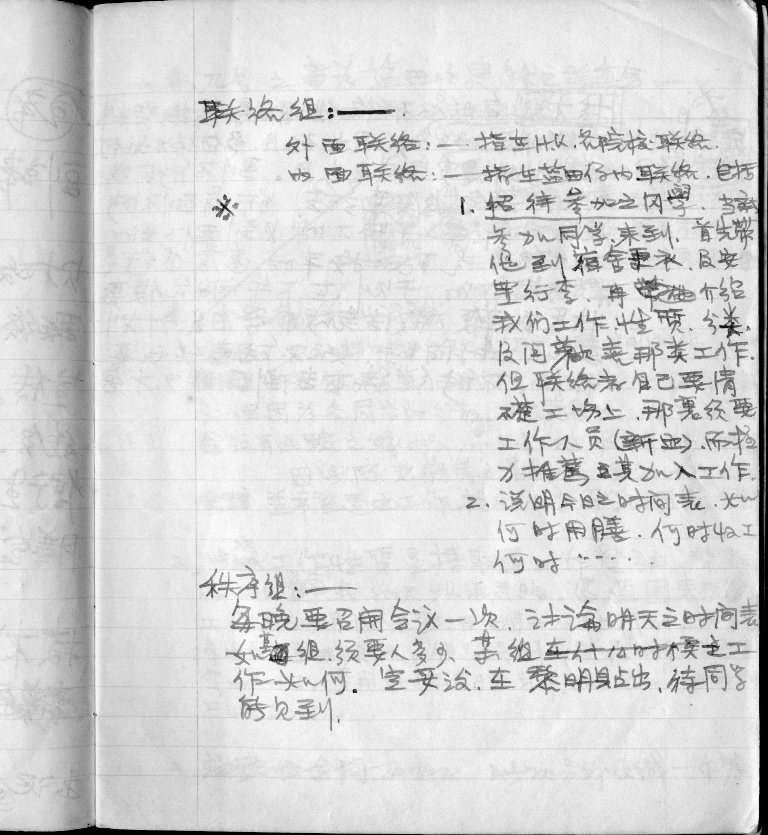 联络组:——
外面联络:— 指在H.K.各院校联络.
内面联络:— 指在蓝田仔内联络.包括
※ 1. 招待参加之同学.当
参加同学.来到.首先带
他到宿舍 及安
置行李.再 介绍
我们工作.性质.分类.
及问 喜那类工作.
但联络 自己要清
楚工场上.那裏须要
工作人员 .而
力推荐 其加入工作.
2. 说明今日之时间表.如
何时用膳.何时收工
何时……
秩序组:——
每晚要召开会议一次.讨论明天之时间表
如 组.须要人多少.某组在什么时候之工
作如何. 妥 .在黎明 出.待同学
能见到.